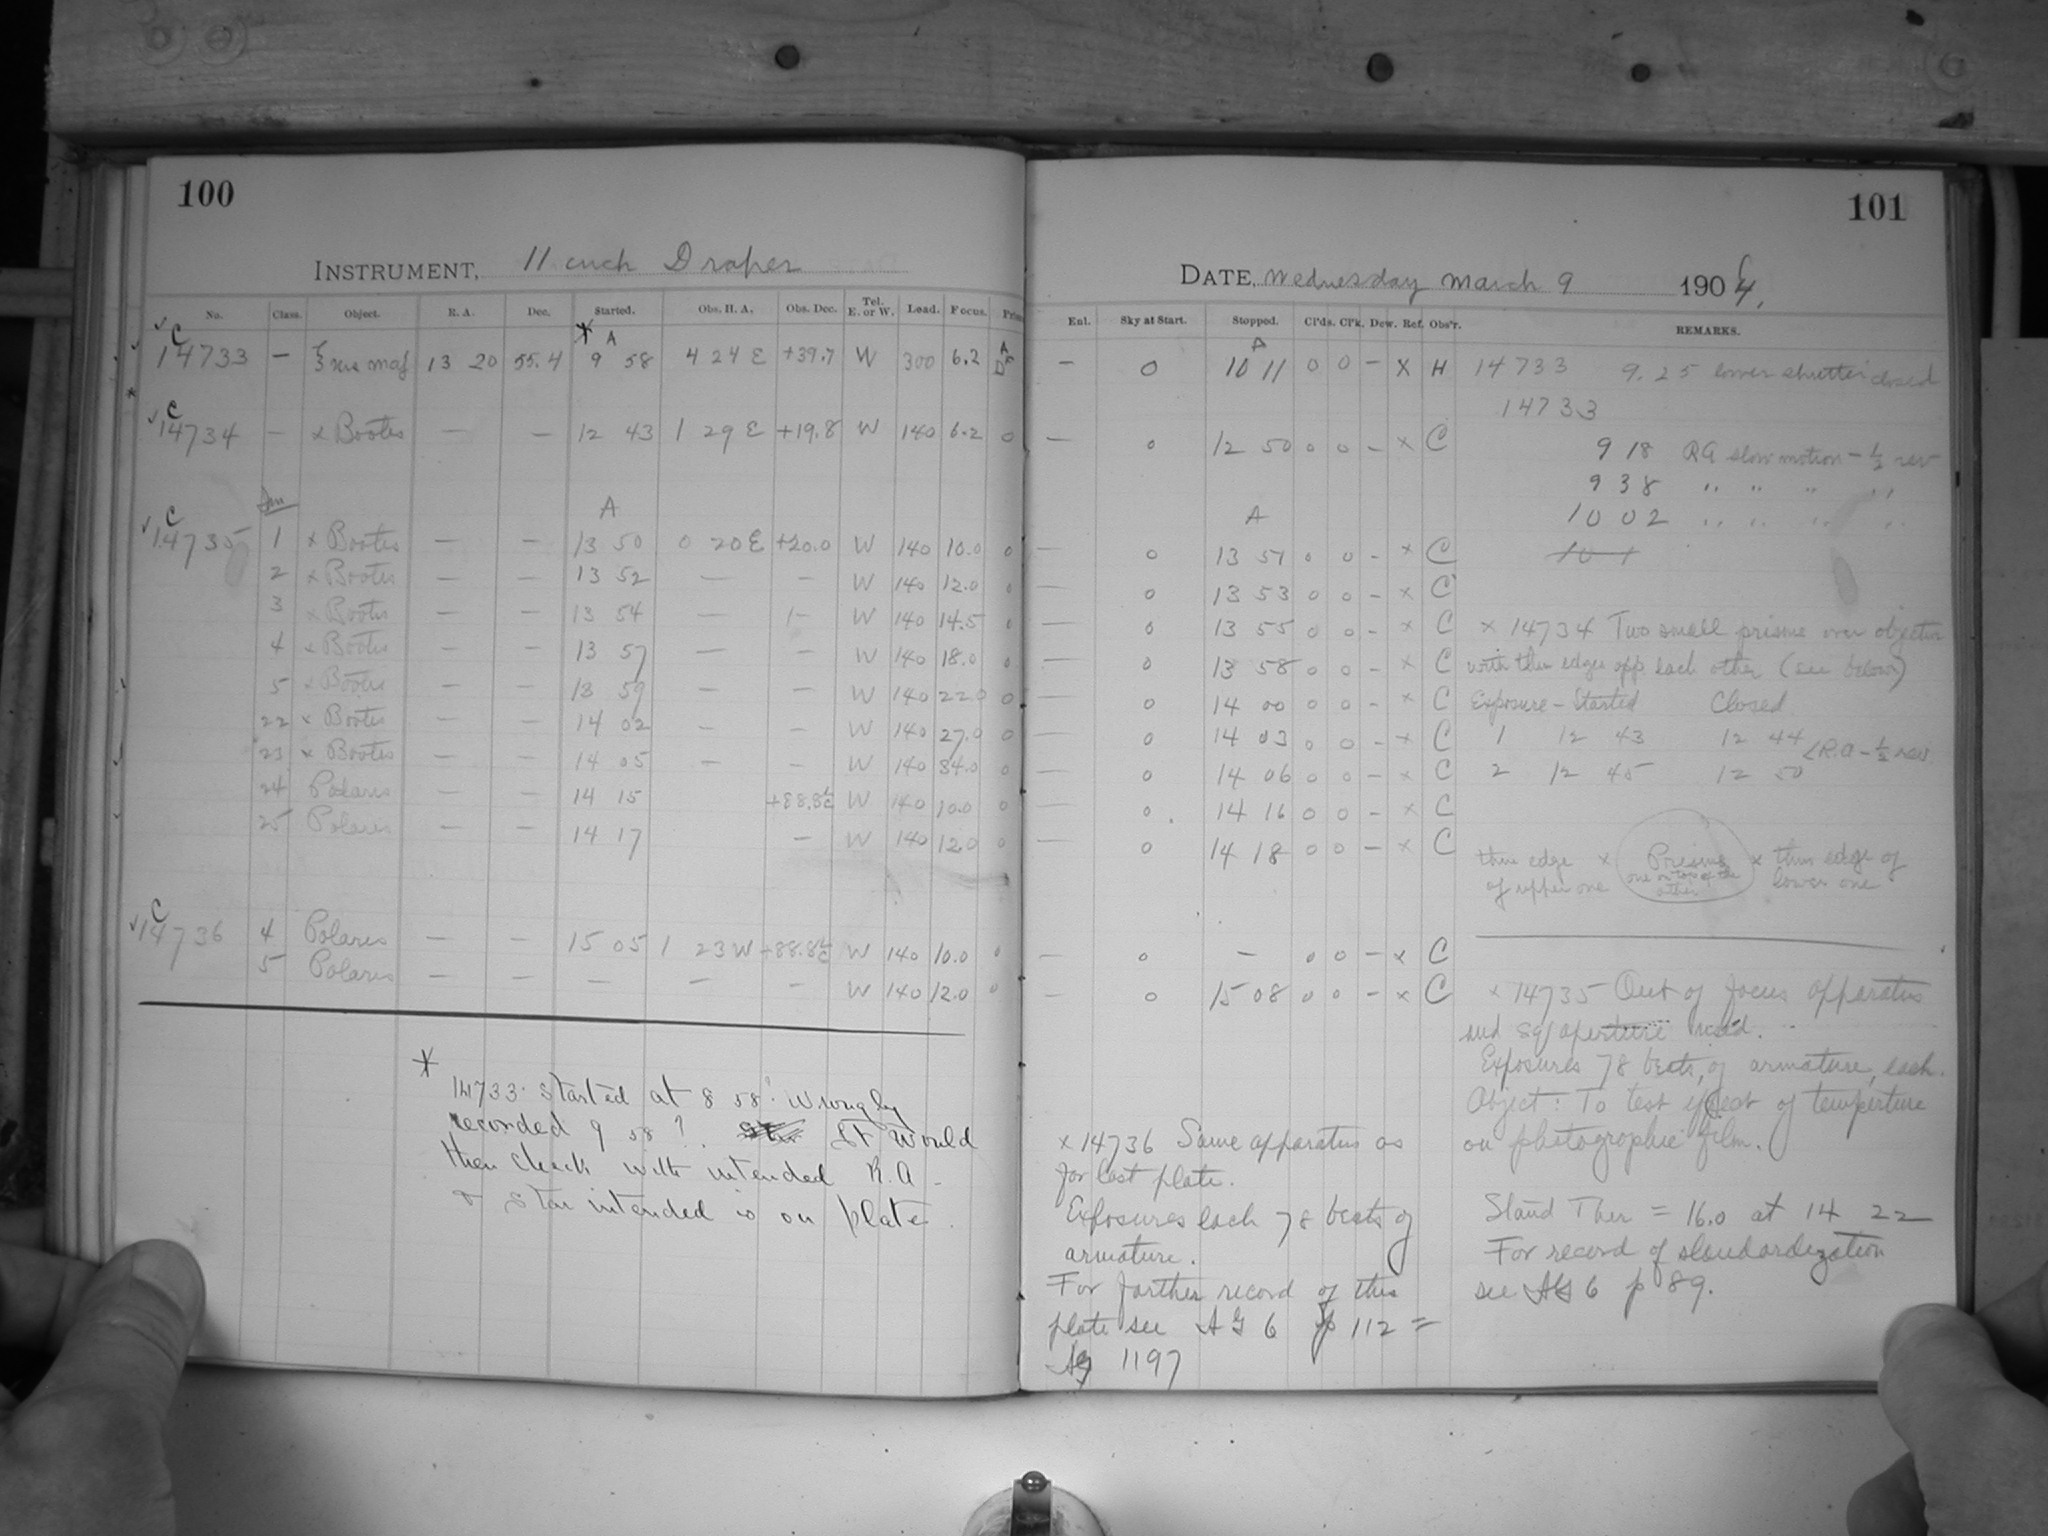 100
INSTRUMENT, 11 inch Draper
No. Class. Object. R. A. Dec. Started. Obs. H. A. Obs. Dec. Tel. E. or W. Load. Focus.
C * A
14733 — ξ urs maj 13 20 55.4 9 58 4 24 E +39.7 W 300 6.2
C
14734 — x Bootes — — 12 43 1 29 E +19.8 W 140 6.2 0
C A
14735 1 x Bootes — — 13 50 0 20 E +20.0 W 140 10.0 0
2 x Bootes — — 13 52 — — W 140 12.0 0
3 x Bootes — — 13 54 — — W 140 14.5 0
4 x Bootes — — 13 57 — — W 140 18.0 0
5 x Bootes — — 13 59 — — W 140 22.0 0
22 x Bootes — — 14 02 — — W 140 27.0 0
23 x Bootes — — 14 05 — — W 140 34.0 0
24 Polaris — — 14 15 +88.8 W 140 10.0 0
25 Polaris — — 14 17 — W 140 12.0 0
C
14736 4 Polaris — — 15 05 1 23 W +88.8 W 140 10.0 0
5 Polaris — — — — — W 140 12.0 0
*
14733 started at 8 58? Wrongly
recorded 9 58?. It would
then check with intended R.A.
& star intended is on plate.
101
DATE, Wednesday March 9 1904,
Enl. Sky at Start. Stopped. Cl'ds. Cl'k. Dew. Ref. Obs'r. REMARKS.
A
— 0 10 11 0 0 — x H 14733 9.25 lower shutter closed
14733
— 0 12 50 0 0 — x C 9 18 RA slow motion — ½ rev
9 38 " " " "
A 10 02 " " " "
— 0 13 51 0 0 — x C
— 0 13 53 0 0 — x C
— 0 13 55 0 0 — x C x 14734 Two small prisms over objective
— 0 13 58 0 0 — x C with thin edges opp. each other (see below)
— 0 14 00 0 0 — x C Exposure — Started Closed
— 0 14 03 0 0 — x C 1 12 43 12 44 < R.A — ½ rev.
— 0 14 06 0 0 — x C 2 12 45 12 50
— 0 14 16 0 0 — x C
— 0 14 18 0 0 — x C
thin edge x Prisms x thin edge of
of upper one one on top of the other lower one
— 0 — 0 0 — x C
— 0 15 08 0 0 — x C x 14735 Out of focus apparatus
and sq aperture used.
Exposures 78 beats, of armature, each.
Object: To test effect of temperture
on photographic film.
Stand Ther = 16.0 at 14 22
For record of standardization
see AG 6 p 89.
x 14736 Same apparatus as
for last plate.
Exposures each 78 beats of
armature.
For farther record of this
plate see AG 6 p 112 =
AG 1197